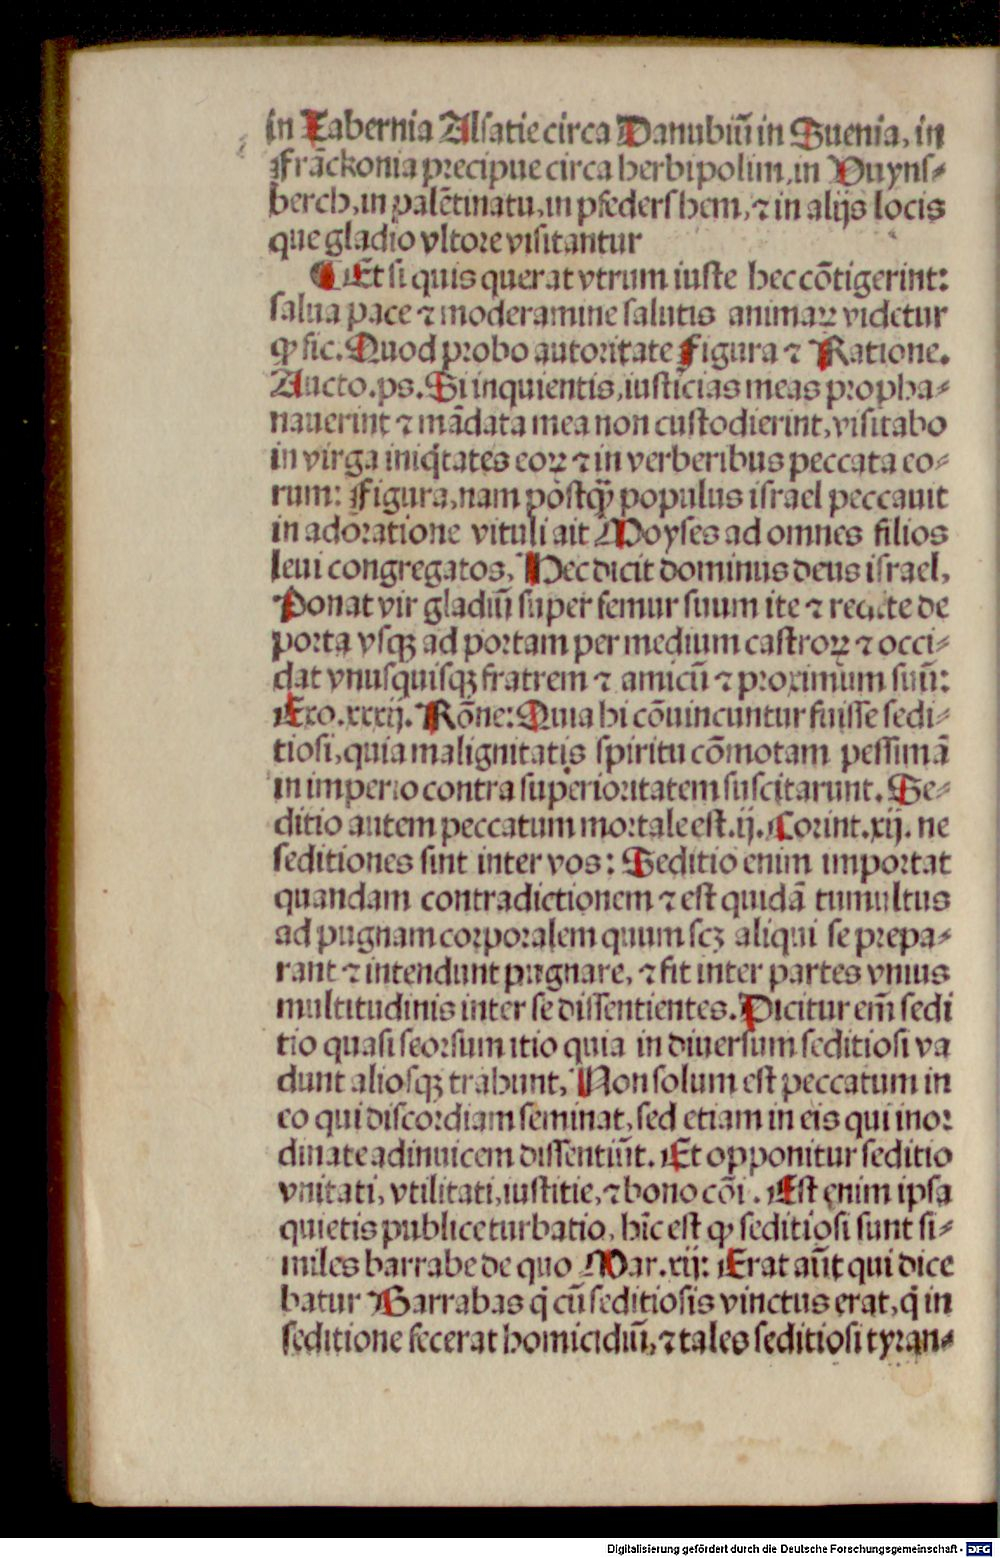 in Tabernia Alsatie circa Danubiū in Sueuia, in
Frāckonia precipue circa herbipolim, in Vuyns⸗
berch, in palētinatu, in pfedershem, ⁊ in alijs locis
que gladio vltore visitantur
¶ Et si quis querat vtrum iuste hec cōtigerint:
salua pace ⁊ moderamine salutis animaꝝ videtur
ꝙ sic. Quod probo autoritate Figura ⁊ Ratione.
Aucto. ps. Si inquientis, iusticias meas propha⸗
nauerint ⁊ mādata mea non custodierint, visitabo
in virga iniq̇tates eoꝝ ⁊ in verberibus peccata eo⸗
rum: Figura, nam postꝙ̄ populus israel peccauit
in adoratione vituli ait Moyses ad omnes filios
leui congregatos, Hec dicit dominus deus israel,
Ponat vir gladiū super femur suum ite ⁊ redite de
porta vsqꝫ ad portam per medium castroꝝ ⁊ occi⸗
dat vnusquisqꝫ fratrem ⁊ amicū ⁊ proximum suū:
Exo. xxxij. Rōne: Quia hi cōuincuntur fuisse sedi⸗
tiosi, quia malignitatis spiritu cōmotam pessimā
in imperio contra superioritatem suscitarunt. Se⸗
ditio autem peccatum mortale est. ij. Corint. xij. ne
seditiones sint inter vos: Seditio enim importat
quandam contradictionem ⁊ est quidā tumultus
ad pugnam corporalem quum scꝫ aliqui se prepa⸗
rant ⁊ intendunt pugnare, ⁊ fit inter partes vnius
multitudinis inter se dissentientes. Dicitur em̄ sedi
tio quasi seorsum itio quia in diuersum seditiosi va
dunt aliosqꝫ trahunt, Non solum est peccatum in
eo qui discordiam seminat, sed etiam in eis qui inor
dinate adinuicem dissentiūt. Et opponitur seditio
vnitati, vtilitati, iustitie, ⁊ bono cōi. Est enim ipsa
quietis publice turbatio, hīc est ꝙ seditiosi sunt si⸗
miles barrabe de quo Mar. xij: Erat aūt qui dice
batur Barrabas q̇ cū seditiosis vinctus erat, q̇ in
seditione fecerat homicidiū, ⁊ tales seditiosi tyran⸗
Digitalisierung gefördert durch die Deutsche Forschungsgemeinschaft - DFG